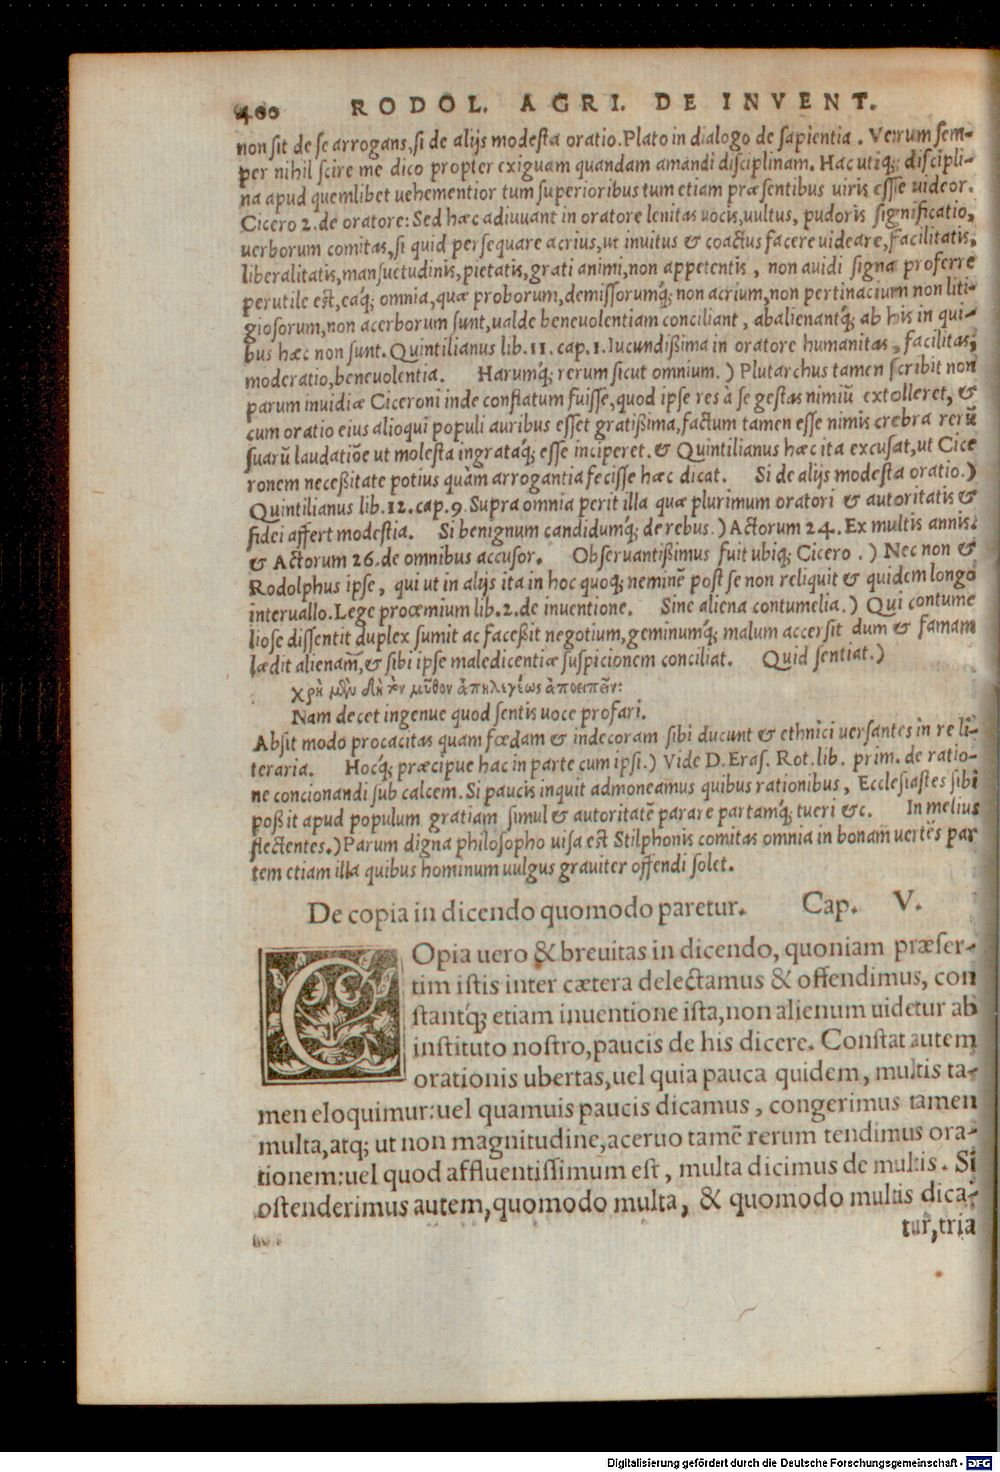 400 RODOL. AGRI. DE INVENT.
non sit de se arrogans, si de alijs modesta oratio. Plato in dialogo de sapientia. Verum sem-
per nihil scire me dico propter exiguam quandam amandi disciplinam. Hac utiq; discipli-
na apud quemlibet uehementior tum superioribus tum etiam præsentibus uiris esse uideor.
Cicero 2. de oratore: Sed hæc adiuuant in oratore lenitas uocis, uultus, pudoris significatio,
uerborum comitas, si quid persequare acrius, ut inuitus & coactus facere uideare, facilitatis,
liberalitatis, mansuetudinis, pietatis, grati animi, non appetentis, non auidi signa proferre
perutile est, eaq́; omnia, quæ proborum, demissorumq́; non acrium, non pertinacium non liti-
giosorum, non acerborum sunt, ualde beneuolentiam conciliant, abalienantq́; ab his in qui-
bus hæc non sunt. Quintilianus lib. 11. cap. 1. Iucundißima in oratore humanitas, facilitas,
moderatio, beneuolentia. Harumq́; rerum sicut omnium.) Plutarchus tamen scribit non
parum inuidiæ Ciceroni inde conflatum fuisse, quod ipse res à se gestas nimiũ extolleret, &
cum oratio eius alioqui populi auribus esset gratißima, factum tamen esse nimis crebra rerũ
suarũ laudatiõe ut molesta ingrataq́; esse inciperet. & Quintilianus hæc ita excusat, ut Cice
ronem neceßitate potius quàm arrogantia fecisse hæc dicat. Si de alijs modesta oratio.)
Quintilianus lib. 12. cap. 9. Supra omnia perit illa quæ plurimum oratori & autoritatis &
fidei affert modestia. Si benignum candidumq́; de rebus.) Actorum 24. Ex multis annis.
& Actorum 26. de omnibus accusor. Obseruantißimus fuit ubiq; Cicero.) Nec non &
Rodolphus ipse, qui ut in alijs ita in hoc quoq; neminẽ post se non reliquit & quidem longo
interuallo. Lege proœmium lib. 2. de inuentione. Sine aliena contumelia.) Qui contume
liose dissentit duplex sumit ac faceßit negotium, geminumq́; malum accersit dum & famam
lædit alienam, & sibi ipse maledicentiæ suspicionem conciliat. Quid sentiat.)
χρὴ μὲν δὴ τὸν μῦθον ἀπηλεγέως ἀποειπεῖν:
Nam decet ingenue quod sentis uoce profari.
Absit modo procacitas quam fœdam & indecoram sibi ducunt & ethnici uersantes in re li-
teraria. Hocq́; præcipue hac in parte cum ipsi.) Vide D. Eras. Rot. lib. prim. de ratio-
ne concionandi sub calcem. Si paucis inquit admoneamus quibus rationibus, Ecclesiastes sibi
poßit apud populum gratiam simul & autoritatẽ parare partamq́; tueri &c. In melius
flectentes.) Parum digna philosopho uisa est Stilphonis comitas omnia in bonam uertẽs par
tem etiam illa quibus hominum uulgus grauiter offendi solet.
De copia in dicendo quomodo paretur. Cap. V.
COpia uero & breuitas in dicendo, quoniam præser-
tim istis inter cætera delectamus & offendimus, con
stantq́; etiam inuentione ista, non alienum uidetur ab
instituto nostro, paucis de his dicere. Constat autem
orationis ubertas, uel quia pauca quidem, multis ta-
men eloquimur: uel quamuis paucis dicamus, congerimus tamen
multa, atq; ut non magnitudine, aceruo tamẽ rerum tendimus ora-
tionem: uel quod affluentissimum est, multa dicimus de multis. Si
ostenderimus autem, quomodo multa, & quomodo multis dica-
tur, tria
Digitalisierung gefördert durch die Deutsche Forschungsgemeinschaft - DFG